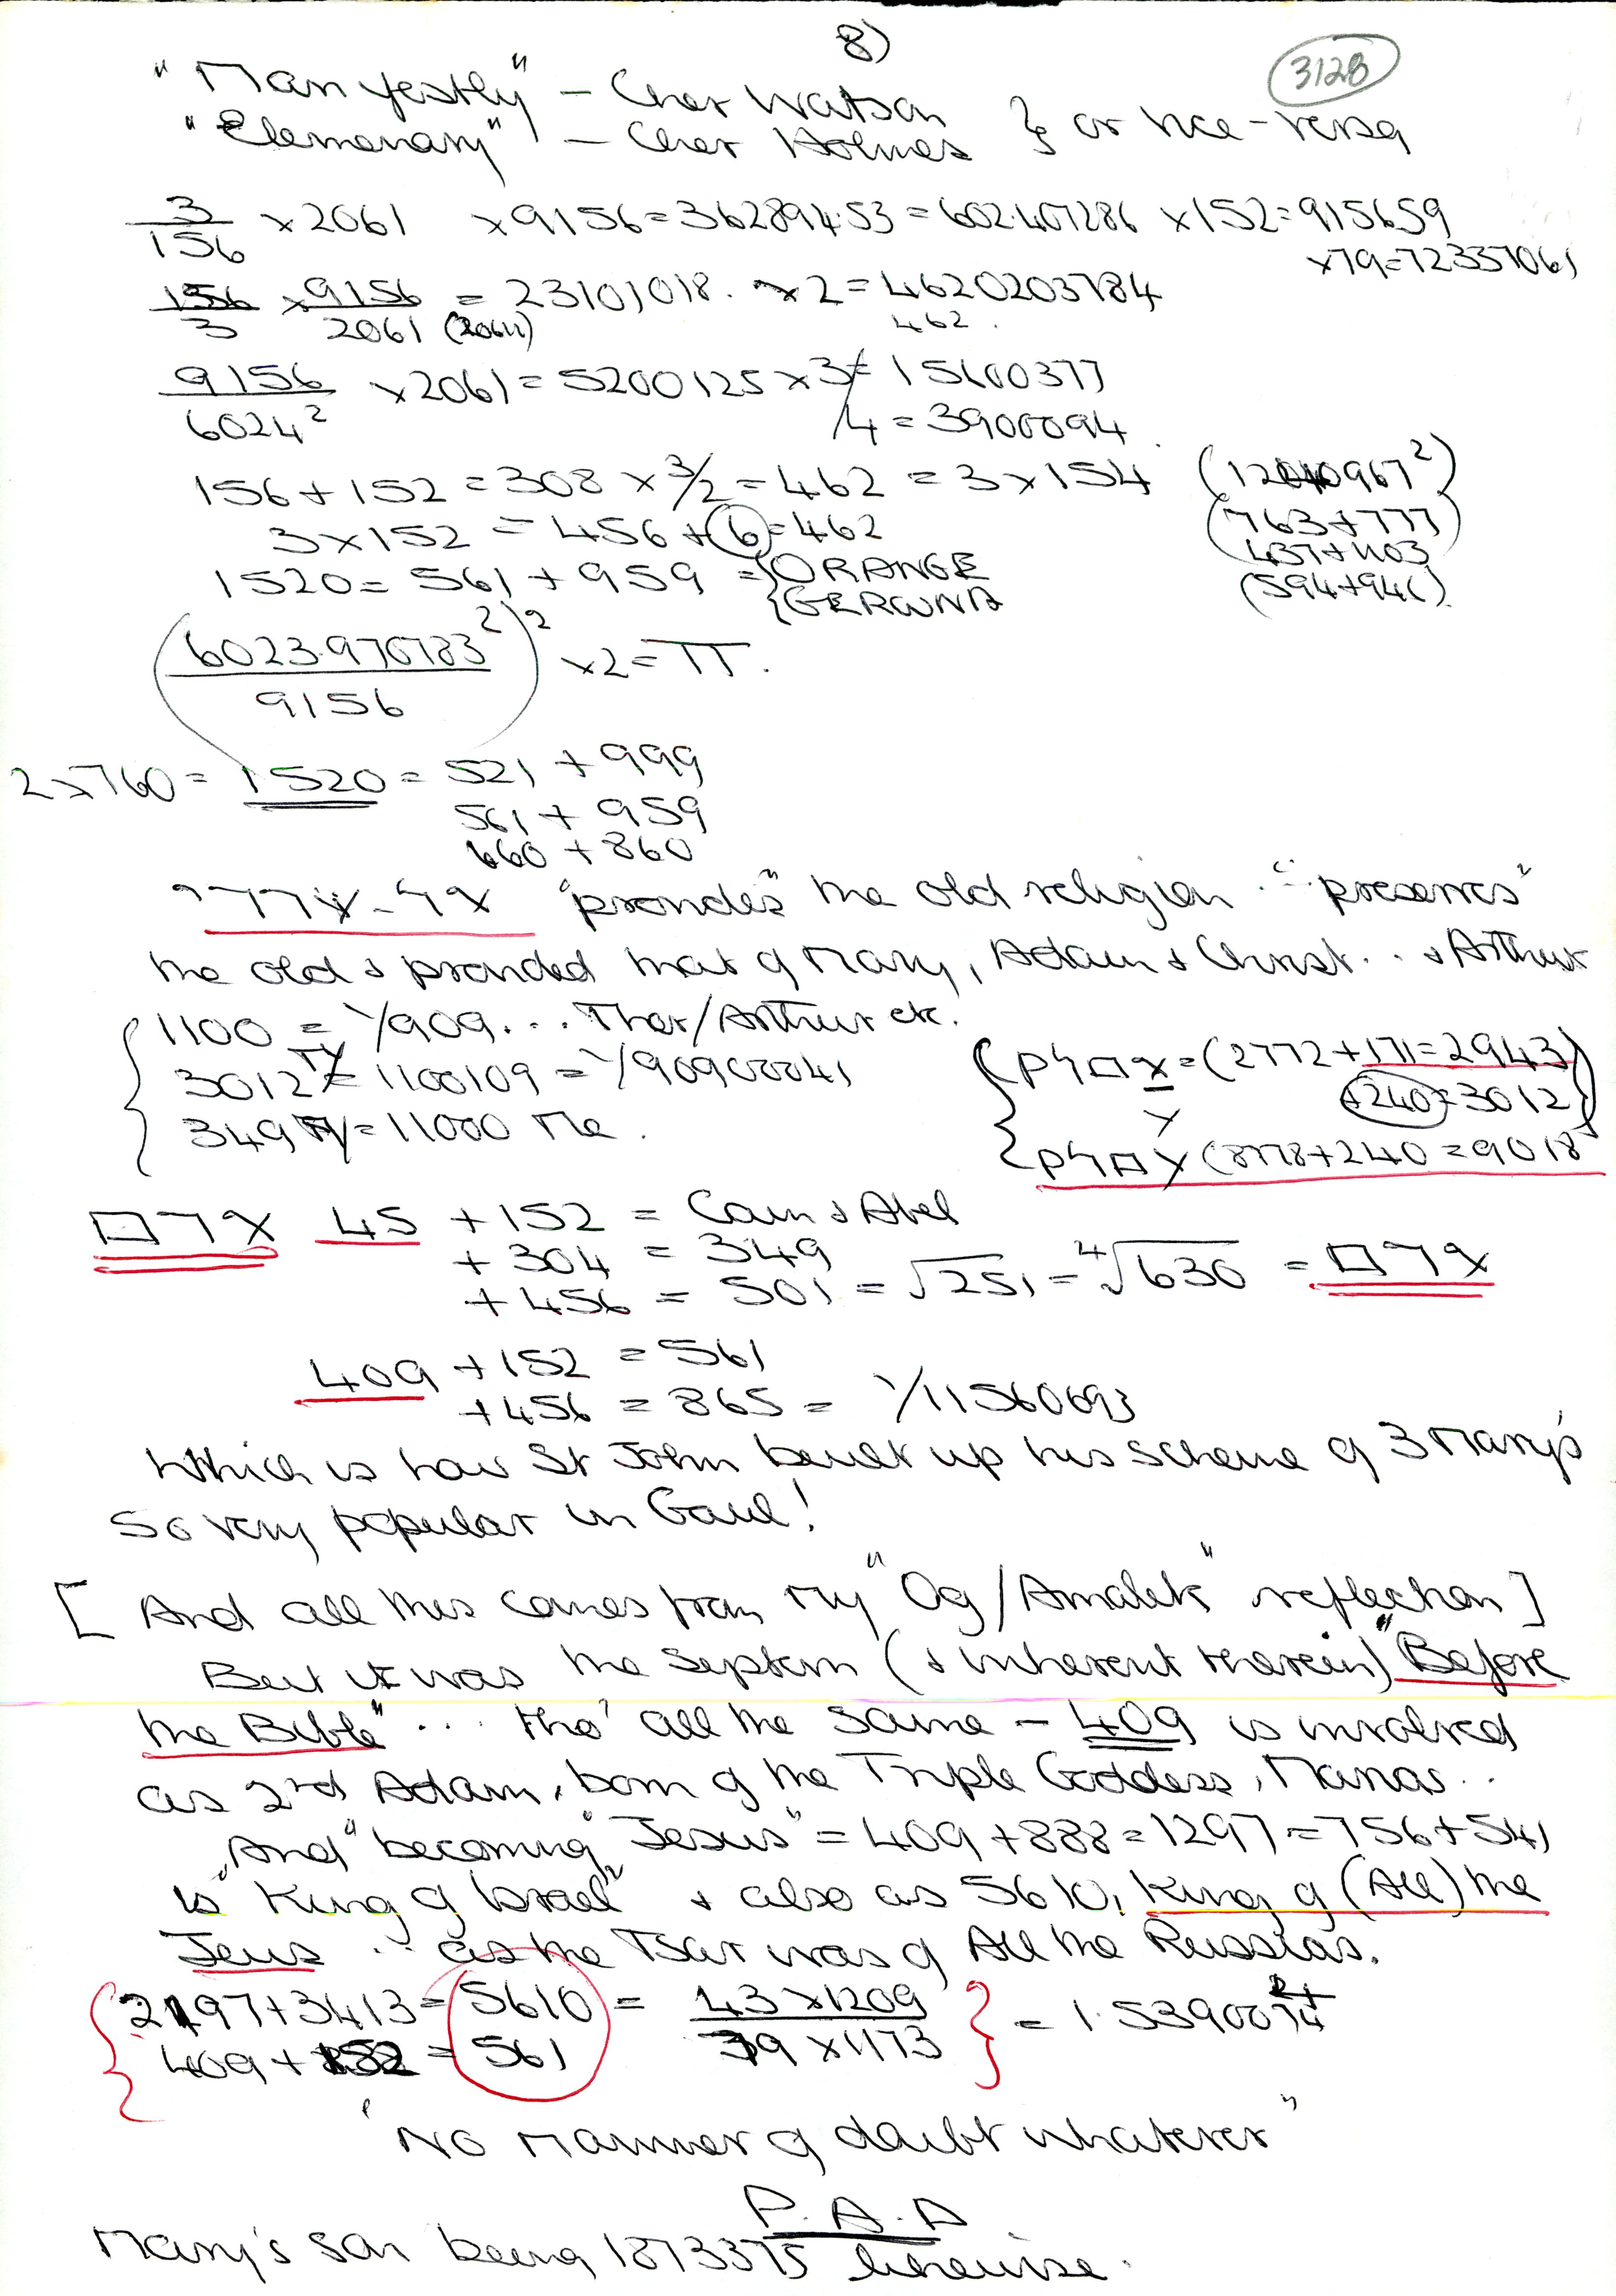 8)
3128
"Manyfestly" – Cher Watson
"Elemenary" – Cher Holmes } or vice-versa
3/156 × 2061 × 9156 = 362894.53 = 602.407286 × 152 = 915659
× 79 = 72337061
156/3 × 9156/2061 = 23101018. × 2 = 4620203784
462.
9156/6024² × 2061 = 5200125 × 3 = 15600377
/4 = 3900094.
156 + 152 = 308 × 3/2 = 462 = 3 × 154
3 × 152 = 456 + 6 = 462
(763 + 777)
437 + 1103
(594 + 946)
1520 = 561 + 959 = {ORANGE
{GEROUNA
(6023.970783²/9156)² × 2 = π.
2 × 760 = 1520 = 521 + 999
561 + 959
660 + 860
"provides" the old religion . . "preserves"
the old & provided that of Mary, Adam & Christ . . & Arthur
1100 = 1/909 . . . Thor/Arthur etc.
3012 = 1100109 = 1/90900041
349 = 11000 The.
(2772 + 171 = 2943)
+240 = 3012
(8778 + 240 = 9018
45 + 152 = Cain & Abel
+ 304 = 349
+ 456 = 501 = √251 = ∜630 =
409 + 152 = 561
+ 456 = 865 = 1/11560693
Which is how St John built up his scheme of 3 Mary's
So very popular in Gaul!
[ And all this comes from my "Og/Amalek" reflection ]
But it was the Septem (& inherent therein) "Before
the Bible" . . . tho' all the same – 409 is involved
as 2nd Adam, born of the Triple Goddess, Marias . .
"And" becoming "Jesus" = 409 + 888 = 1297 = 756 + 541
is "King of Israel" & also as 5610, King of (All) the
Jews . . as the Tsar was of All the Russias.
2197 + 3413 = 5610 = 43 × 1209
409 + 152 = 561 39 × 1173 = 1.5390074
"No manner of doubt whatever"
P.A.D
Mary's son being 1873375 likewise.